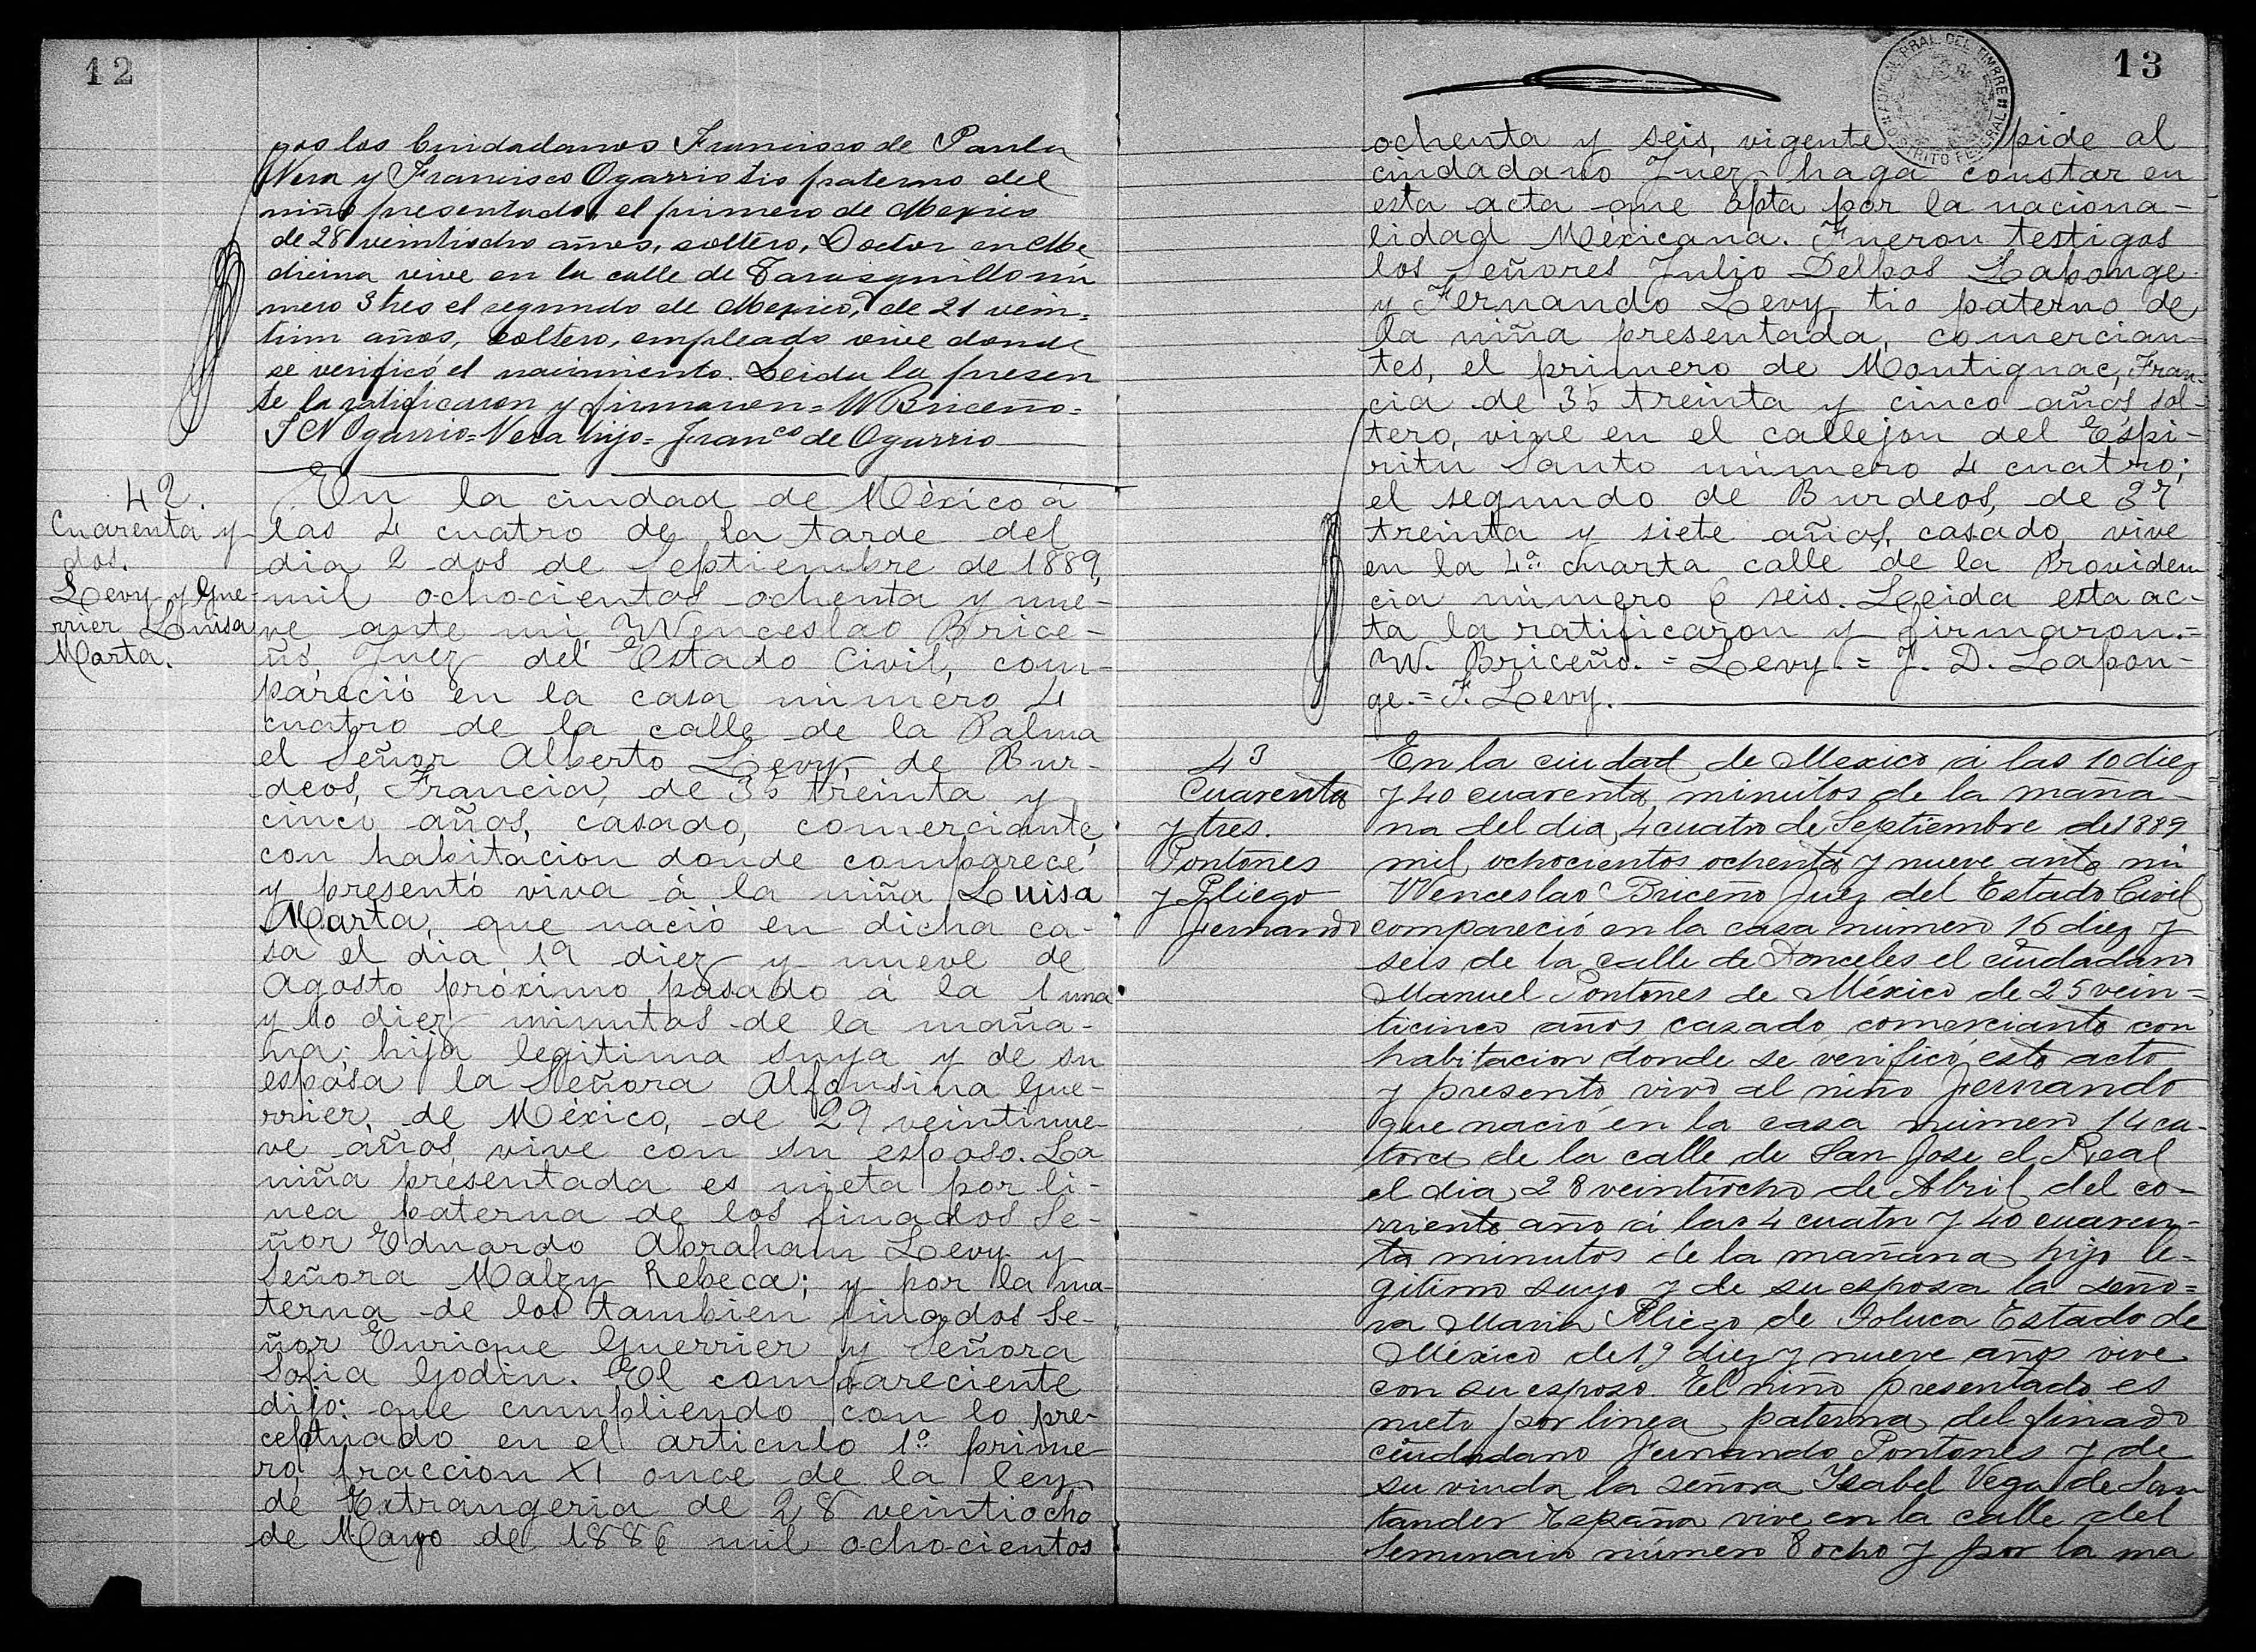 12
gos los Ciudadanos Francisco de Paula
Vera y Francisco Ogarrio tio paterno del
niño presentado, el primero de Mexico
de 28 veintiocho años, soltero, Doctor en Me
dicina vive en la calle de Tarasquillo nú
mero 3 tres el segundo de Mexico, de 21 vein=
tiun años, soltero, empleado vive donde
se verificó el nacimiento. Leida la presen
te la ratificaron y firmaron = W Briceño =
J N Ogarrio = Vera hijo = Franco de Ogarrio
42.
Cuarenta y
dos.
Levy y Gue-
rrier Luisa
Marta.
En la ciudad de México á
las 4 cuatro de la tarde del
dia 2 dos de Septiembre de 1889,
mil ochocientos ochenta y nue-
ve, ante mi, Wenceslao Brice-
ño, Juez del Estado Civil, com-
pareció en la casa número 4
cuatro de la calle de la Palma
el Señor Alberto Levy, de Bur-
deos, Francia, de 35 treinta y
cinco años, casado, comerciante,
con habitacion donde comparece
y presentó viva á la niña Luisa
Marta, que nació en dicha ca-
sa el dia 19 diez y nueve de
Agosto próximo pasado á la 1 una
y 10 diez minutos de la maña-
na; hija legitima suya y de su
esposa la Señora Alfonsina Gue-
rrier, de México, de 29 veintinue-
ve años, vive con su esposo. La
niña presentada es nieta por li-
nea paterna de los finados Se-
ñor Eduardo Abraham Levy y
Señora Malzy Rebeca; y por la ma-
terna de los tambien finados Se-
ñor Enrique Guerrier y Señora
Sofia Godin. El compareciente
dijo: que cumpliendo con lo pre-
ceptuado en el articulo 1º prime-
ro, fraccion XI once de la ley
de Extrangeria de 28 veintiocho
de Mayo de 1886 mil ochocientos
13
ADMON. PRAL. DEL TIMBRE
DISTRITO FEDERAL
ochenta y seis, vigente pide al
ciudadano Juez haga constar en
esta acta que opta por la naciona-
lidad Méxicana. Fueron testigos
los Señores Julio Delbos Laponge
y Fernando Levy, tio paterno de
la niña presentada, comercian-
tes, el primero de Montignac, Fran-
cia de 35 treinta y cinco años, sol-
tero, vive en el callejon del Espi-
ritu Santo número 4 cuatro;
el segundo de Burdeos, de 37
treinta y siete años, casado, vive
en la 4ª cuarta calle de la Providen
cia número 6 seis. Leida esta ac-
ta la ratificaron y firmaron.=
W. Briceño. = Levy. = J. D. Lapon-
ge. = F. Levy.
43
Cuarenta
y tres.
Pontones
y Pliego
Fernando
En la ciudad de Mexico á las 10 diez
y 40 cuarenta minutos de la maña-
na del dia 4 cuatro de Septiembre de 1889
mil ochocientos ochenta y nueve ante mi
Wenceslao Briceño Juez del Estado Civil
compareció en la casa número 16 diez y
seis de la calle de Donceles el ciudadano
Manuel Pontones de México de 25 vein=
ticinco años casado, comerciante con
habitacion donde se verificó este acto
y presentó vivo al niño Fernando
que nació en la casa número 14 ca-
torce de la calle de San Jose el Real
el dia 28 veintiocho de Abril del co-
rriente año á las 4 cuatro y 40 cuaren-
ta minutos de la mañana hijo le-
gitimo suyo y de su esposa la seño=
ra Maria Pliego de Toluca Estado de
México de 19 diez y nueve años vive
con su esposo. El niño presentado es
nieto por linea paterna del finado
ciudadano Fernando Pontones y de
su viuda la señora Isabel Vega de San
tander España vive en la calle del
Seminario número 8 ocho y por la ma